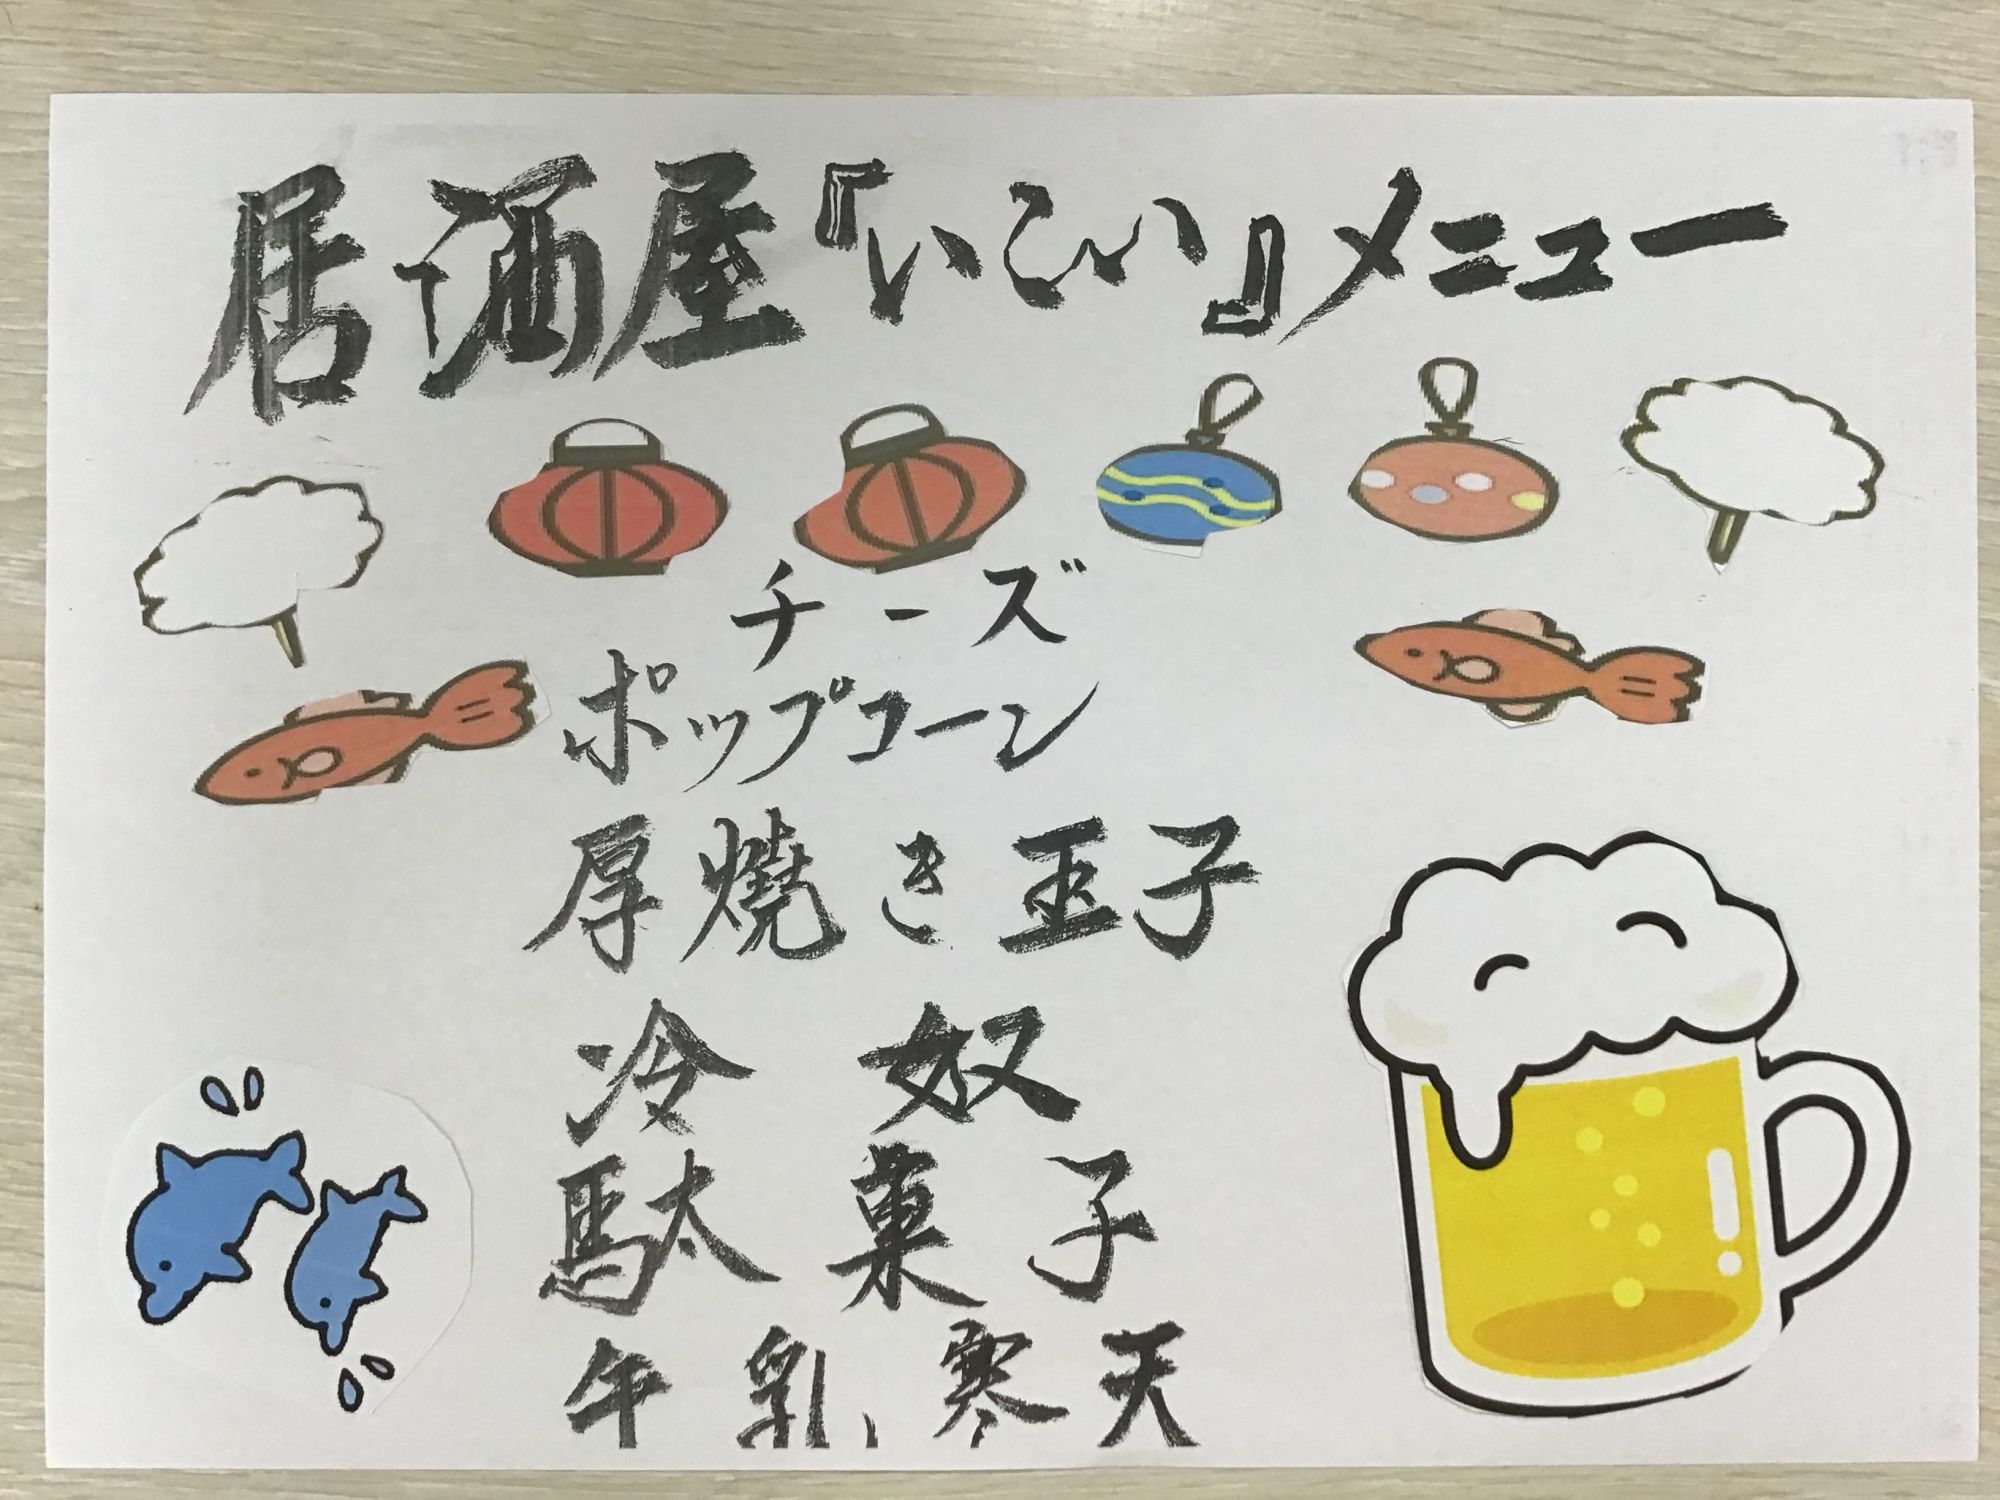 居酒屋『いこい』メニュー
チーズ
ポップコーン
厚焼き玉子
冷奴
駄菓子
牛乳寒天